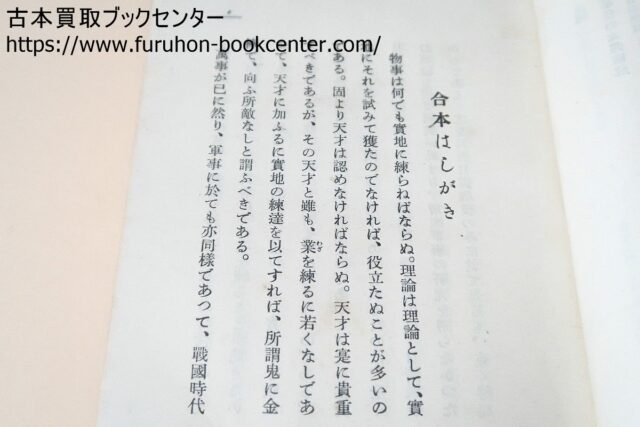 古本買取ブックセンター
https://www.furuhon-bookcenter.com/
合本はしがき
物事は何でも實地に練らねばならぬ。理論は理論として、實
にそれを試みて獲たのでなければ、役立たぬことが多いの
ある。固より天才は認めなければならぬ。天才は寔に貴重
べきであるが、その天才と雖も、業を練るに若くなしであ
わざ
て、天才に加ふるに實地の練達を以てすれば、所謂鬼に金
て、向ふ所敵なしと謂ふべきである。
萬事が已に然り、軍事に於ても亦同樣であつて、戰國時代